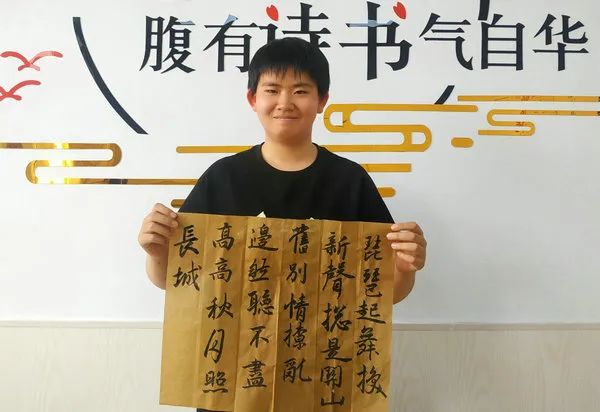 腹有诗书气自华
琵琶起舞換
新聲摠是関山
舊別情撩亂
邊愁聽不盡
高高秋月照
長城